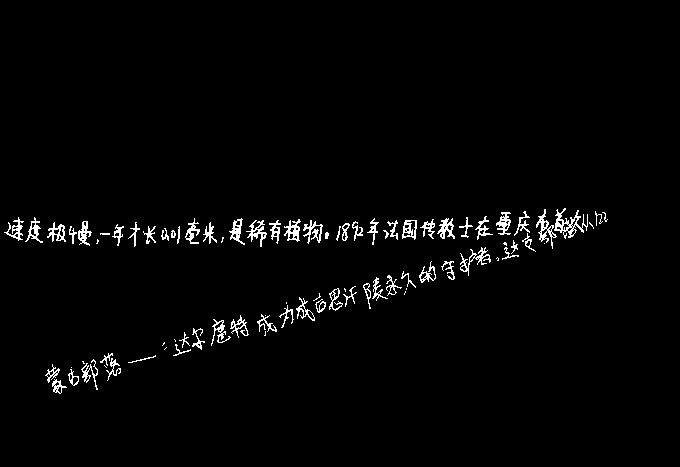 速度极慢,一年才长0.01毫米,是稀有植物。1892年法国传教士在重庆市首次
蒙古部落——:达尔扈特成为成吉思汗陵永久的守护者。这支部落从122